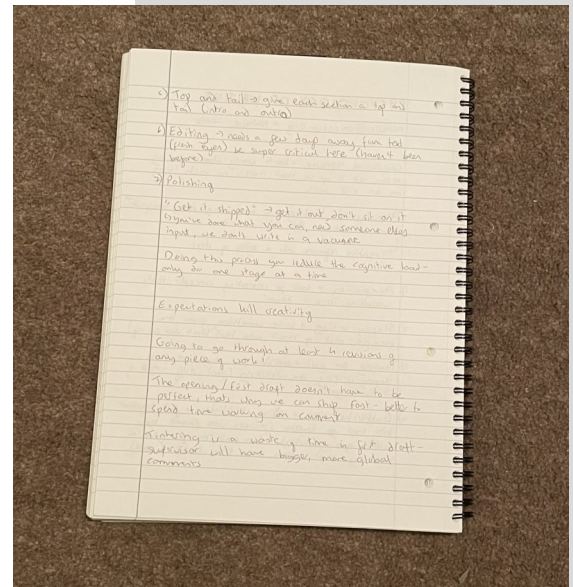 5) Top and tail → give each section a top and
tail (intro and outro)
6) Editing → needs a few days away from text
(fresh eyes) be super critical here (haven't been
before)
7) Polishing
"Get it shipped" → get it out, don't sit on it
↳ you've done what you can, need someone elses
input, we don't write in a vacuum
Doing this process you reduce the cognitive load -
only do one stage at a time
Expectations kill creativity
Going to go through at least 4 revisions of
any piece of work!
The opening/first draft doesn't have to be
perfect, thats why we can ship fast - better to
spend time working on comment
Tinkering is a waste of time in first draft -
supervisor will have bigger, more global
comments